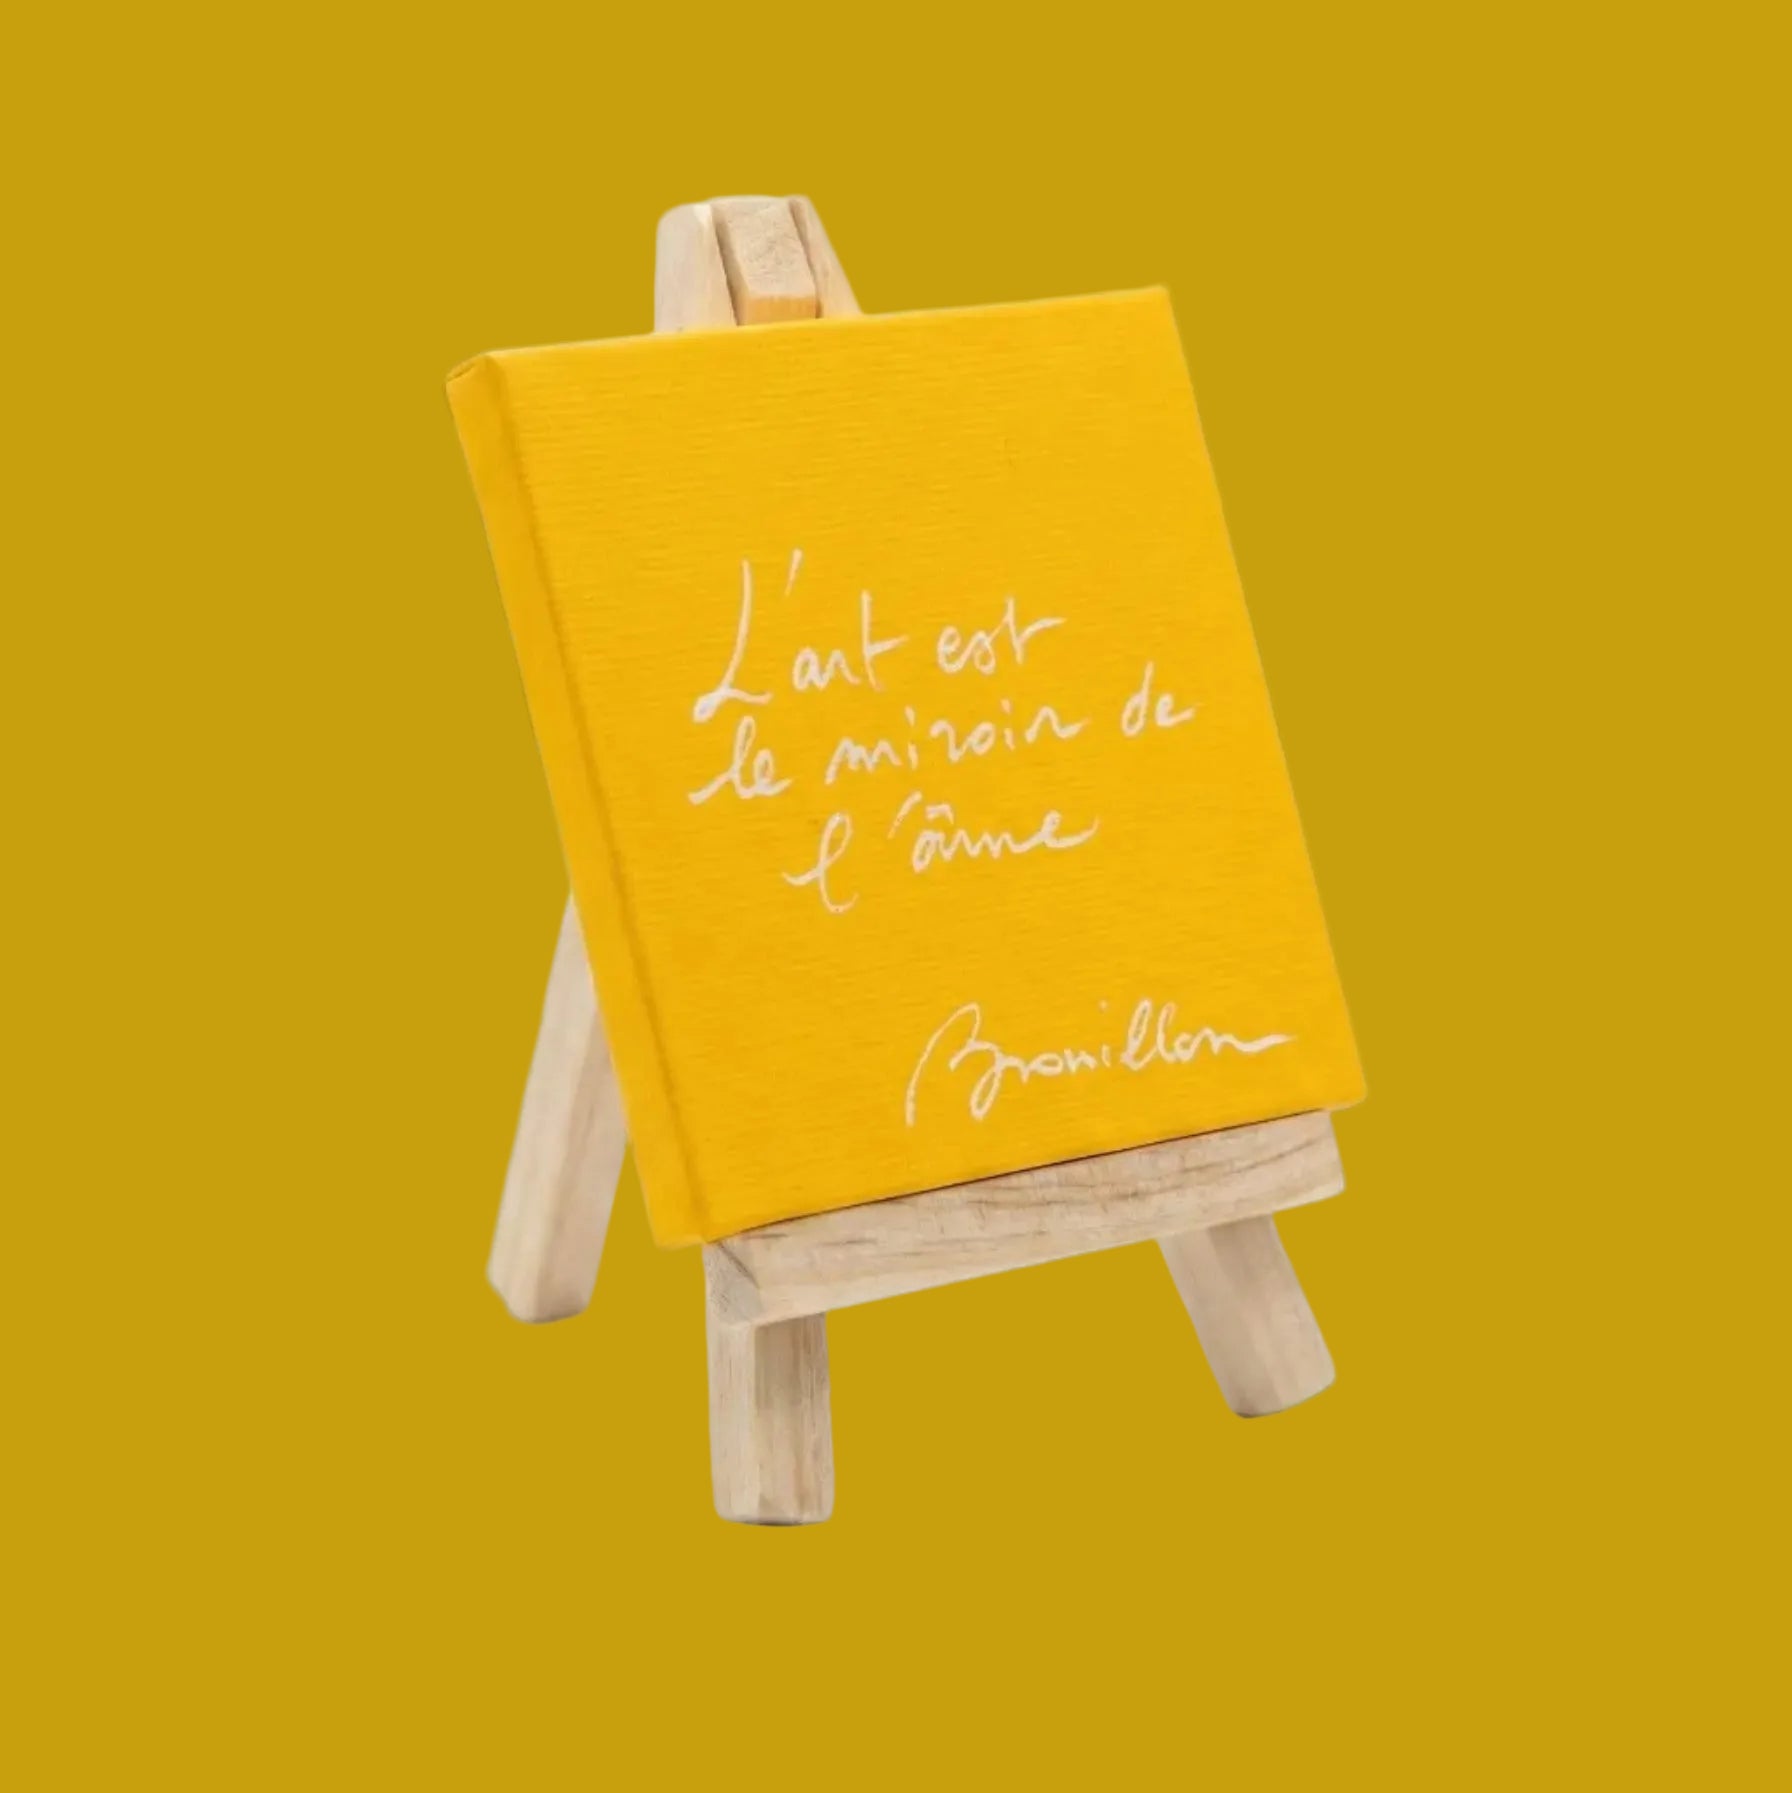 L'art est
le miroir de
l'âme
Brouillon